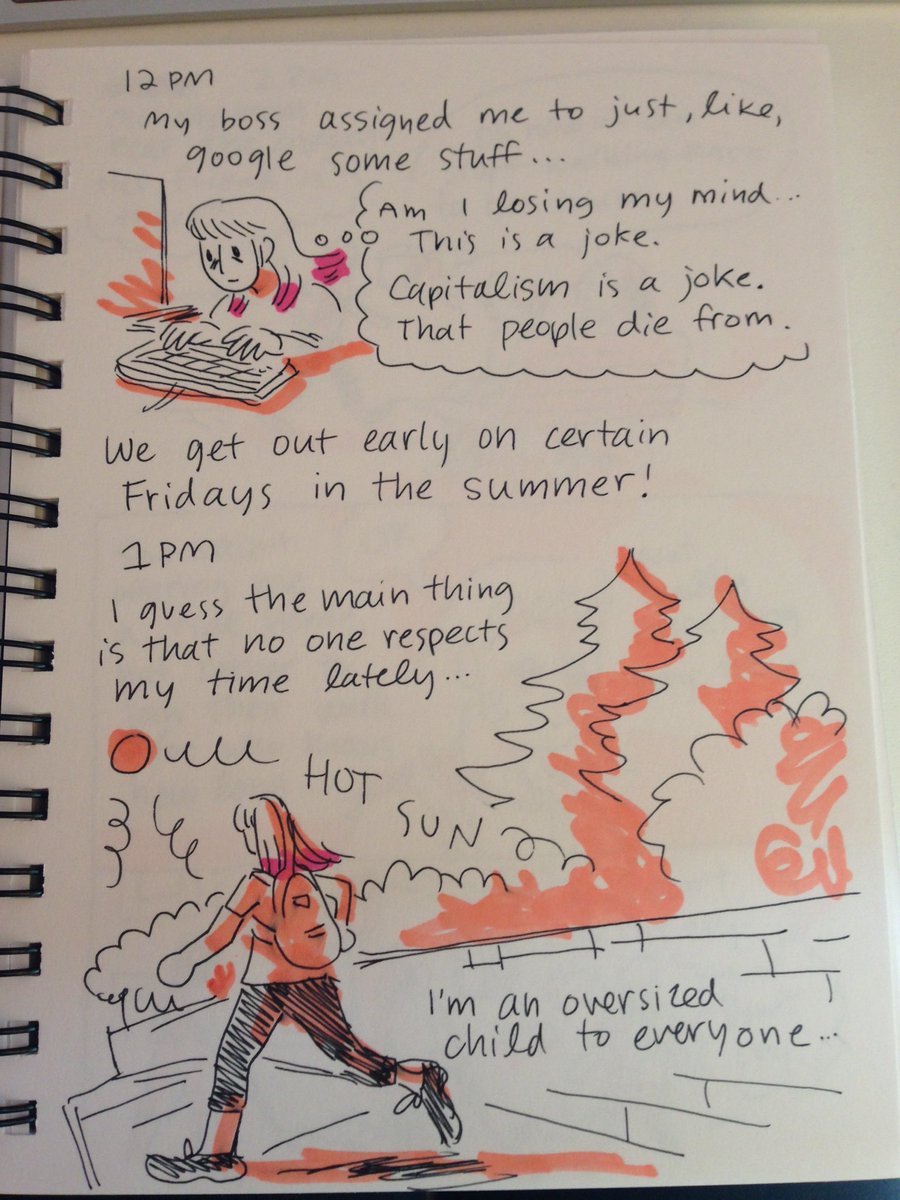 12 PM
My boss assigned me to just, like,
google some stuff...
Am I losing my mind...
This is a joke.
Capitalism is a joke.
That people die from.
We get out early on certain
Fridays in the summer!
1 PM
I guess the main thing
is that no one respects
my time lately...
HOT
SUN
I'm an oversized
child to everyone...